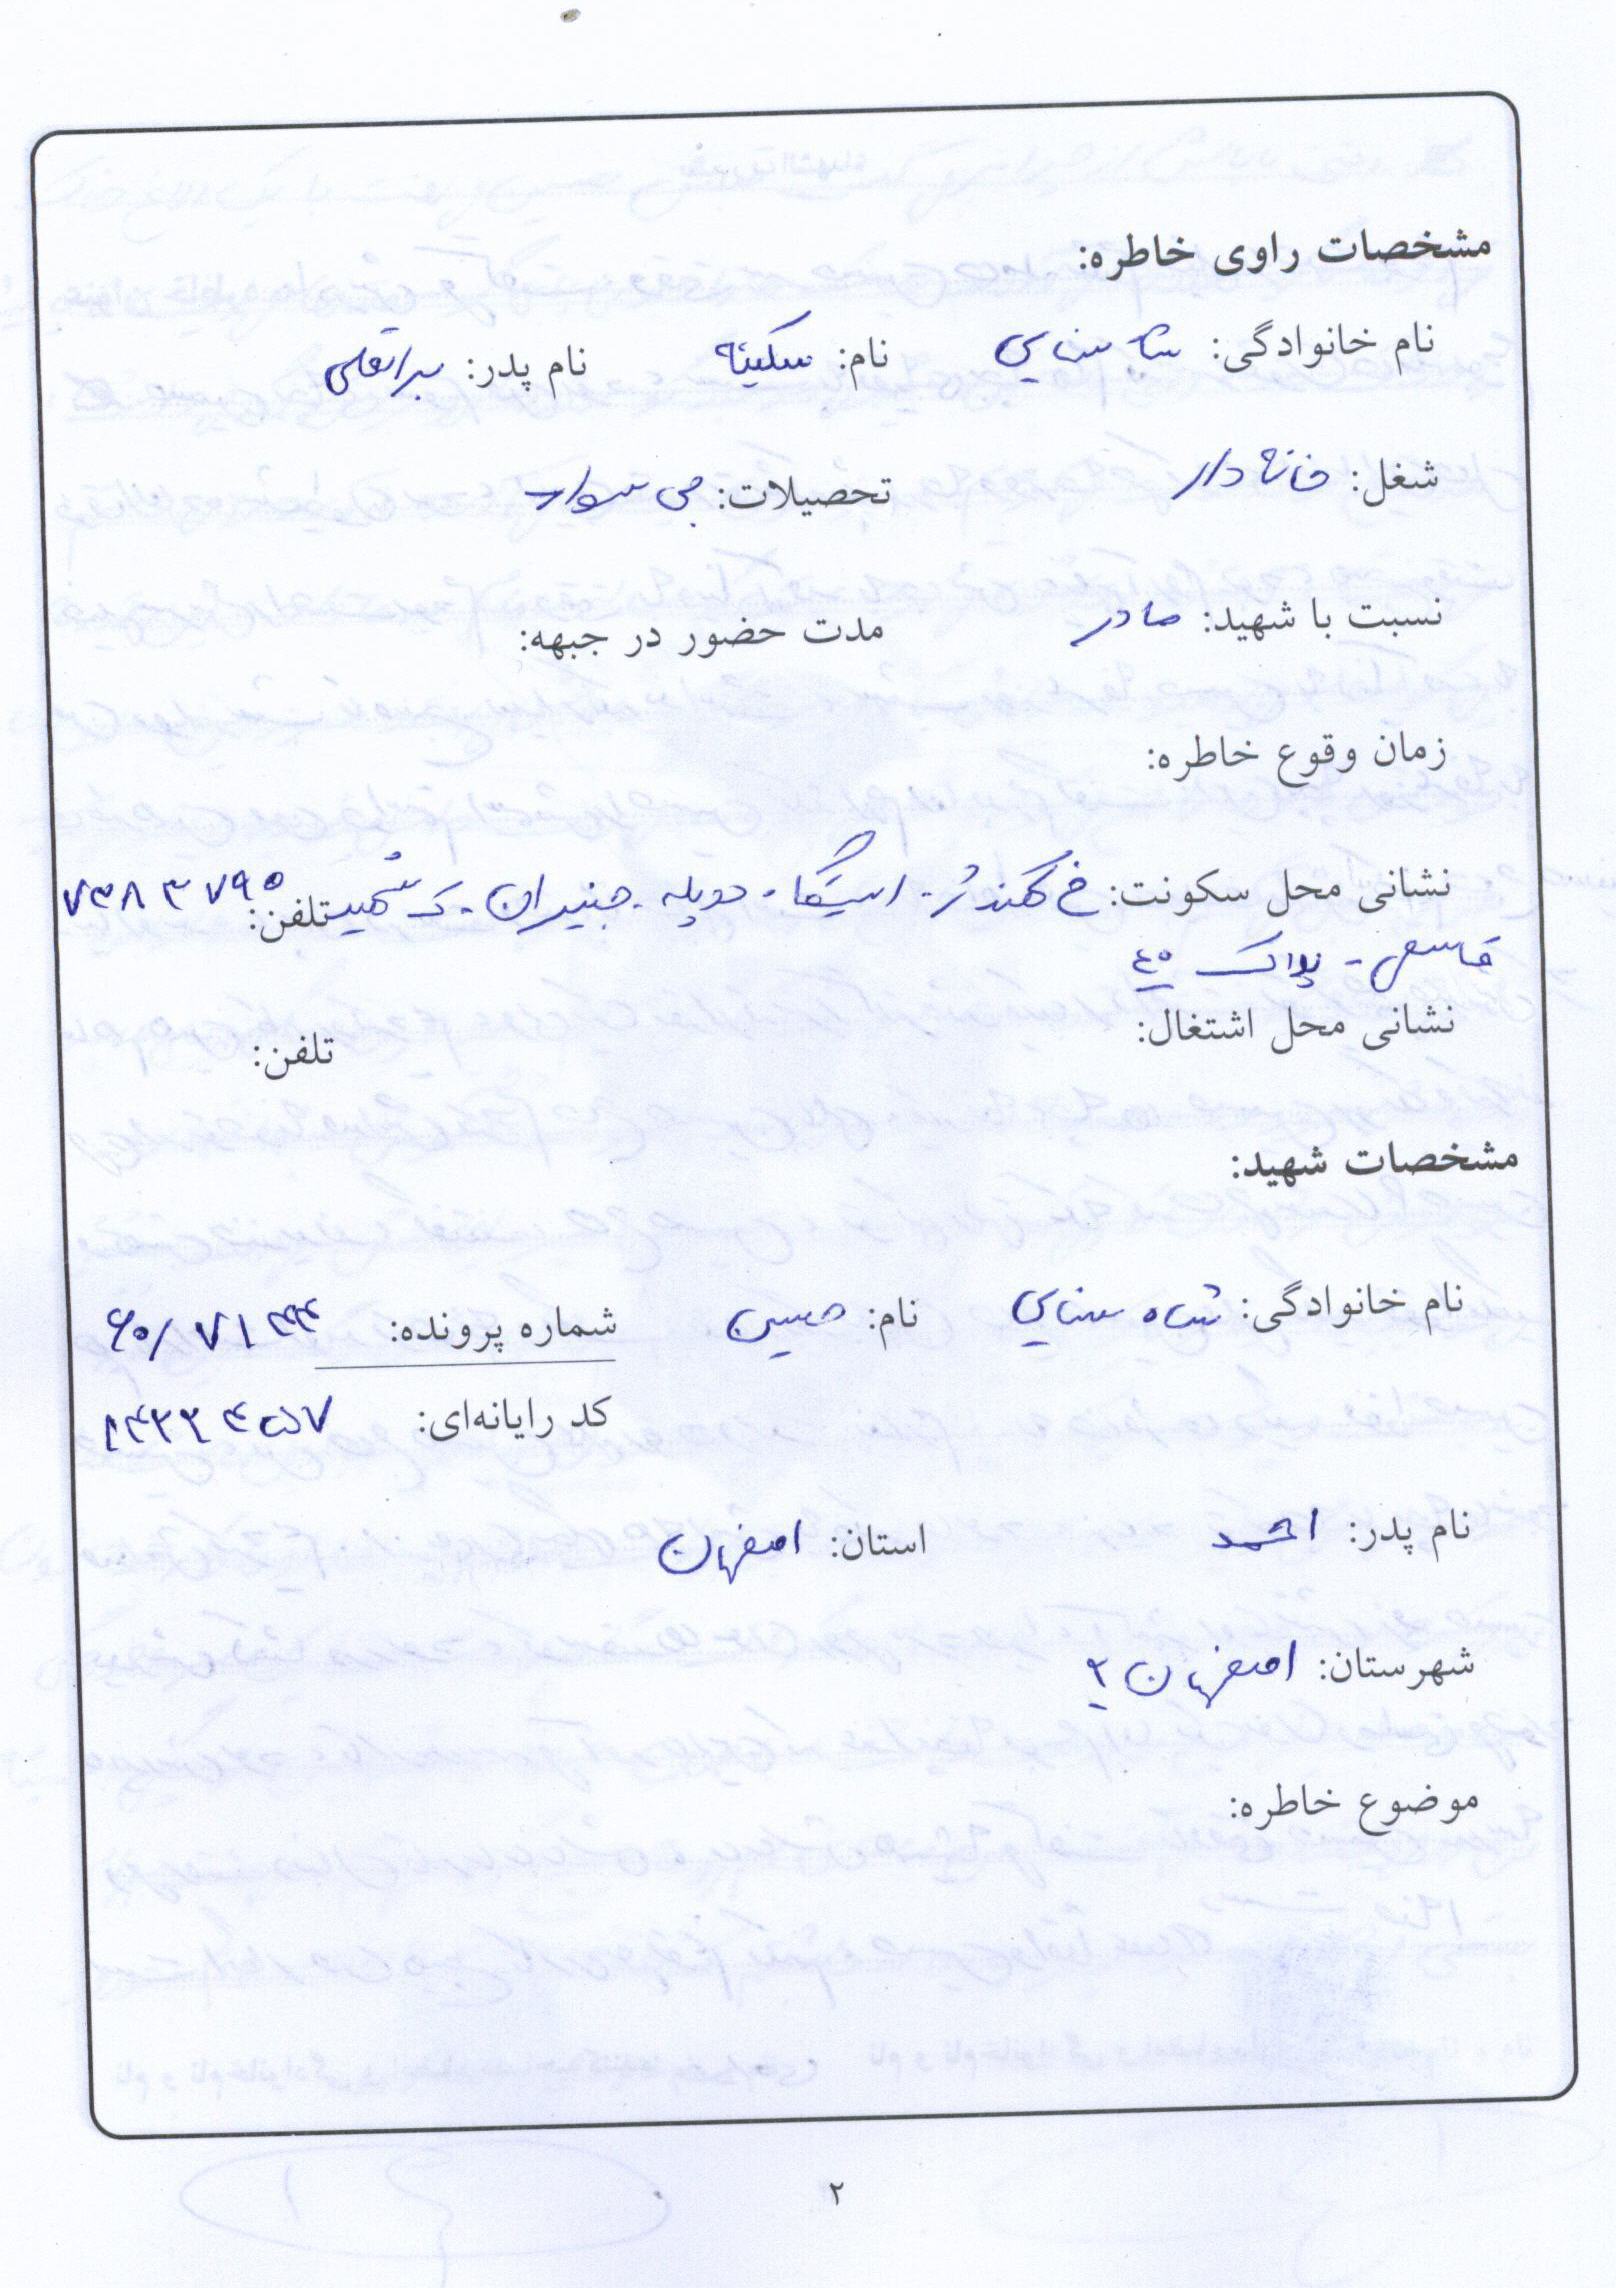 مشخصات راوی خاطره:
نام خانوادگی: شاه سنایی نام: سکینه نام پدر: براتعلی
شغل: خانه دار تحصیلات: بی سواد
نسبت با شهید: مادر مدت حضور در جبهه:
زمان وقوع خاطره:
نشانی محل سکونت: خ کهندژ - ایستگاه - دوپله - جنیران - ک شهید تلفن: ۷۳۸۳۷۹۵
قاسمی - پلاک ۴۰
نشانی محل اشتغال: تلفن:
مشخصات شهید:
نام خانوادگی: شاه سنایی نام: حسین شماره پرونده: ۶۰/۷۱۴۴
کد رایانه‌ای:
نام پدر: احمد استان: اصفهان
شهرستان: اصفهان ۲
موضوع خاطره:
۲